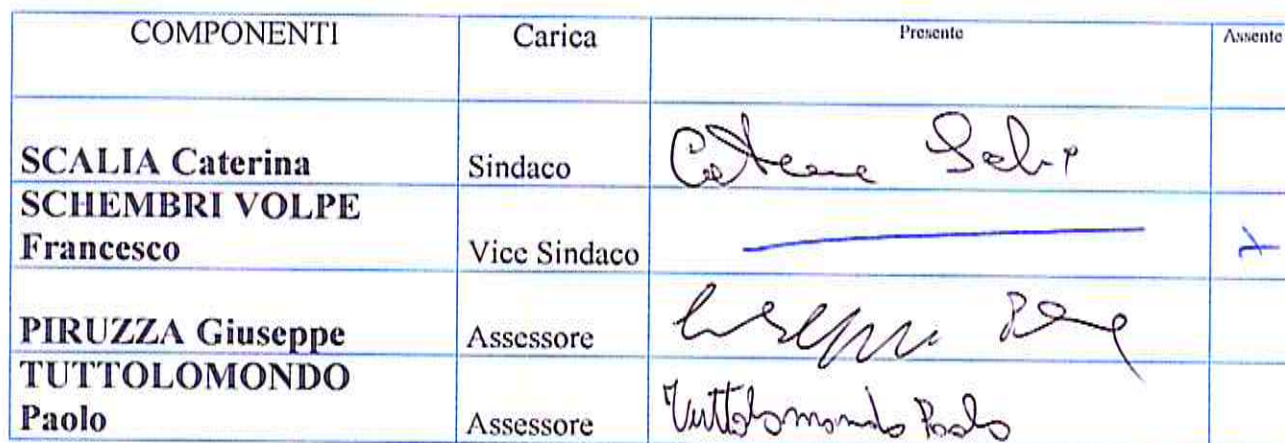 COMPONENTI Carica Presente Assente
SCALIA Caterina Sindaco Caterina Scalia
SCHEMBRI VOLPE
Francesco Vice Sindaco x
PIRUZZA Giuseppe Assessore Giuseppe
TUTTOLOMONDO
Paolo Assessore Tuttolomondo Paolo